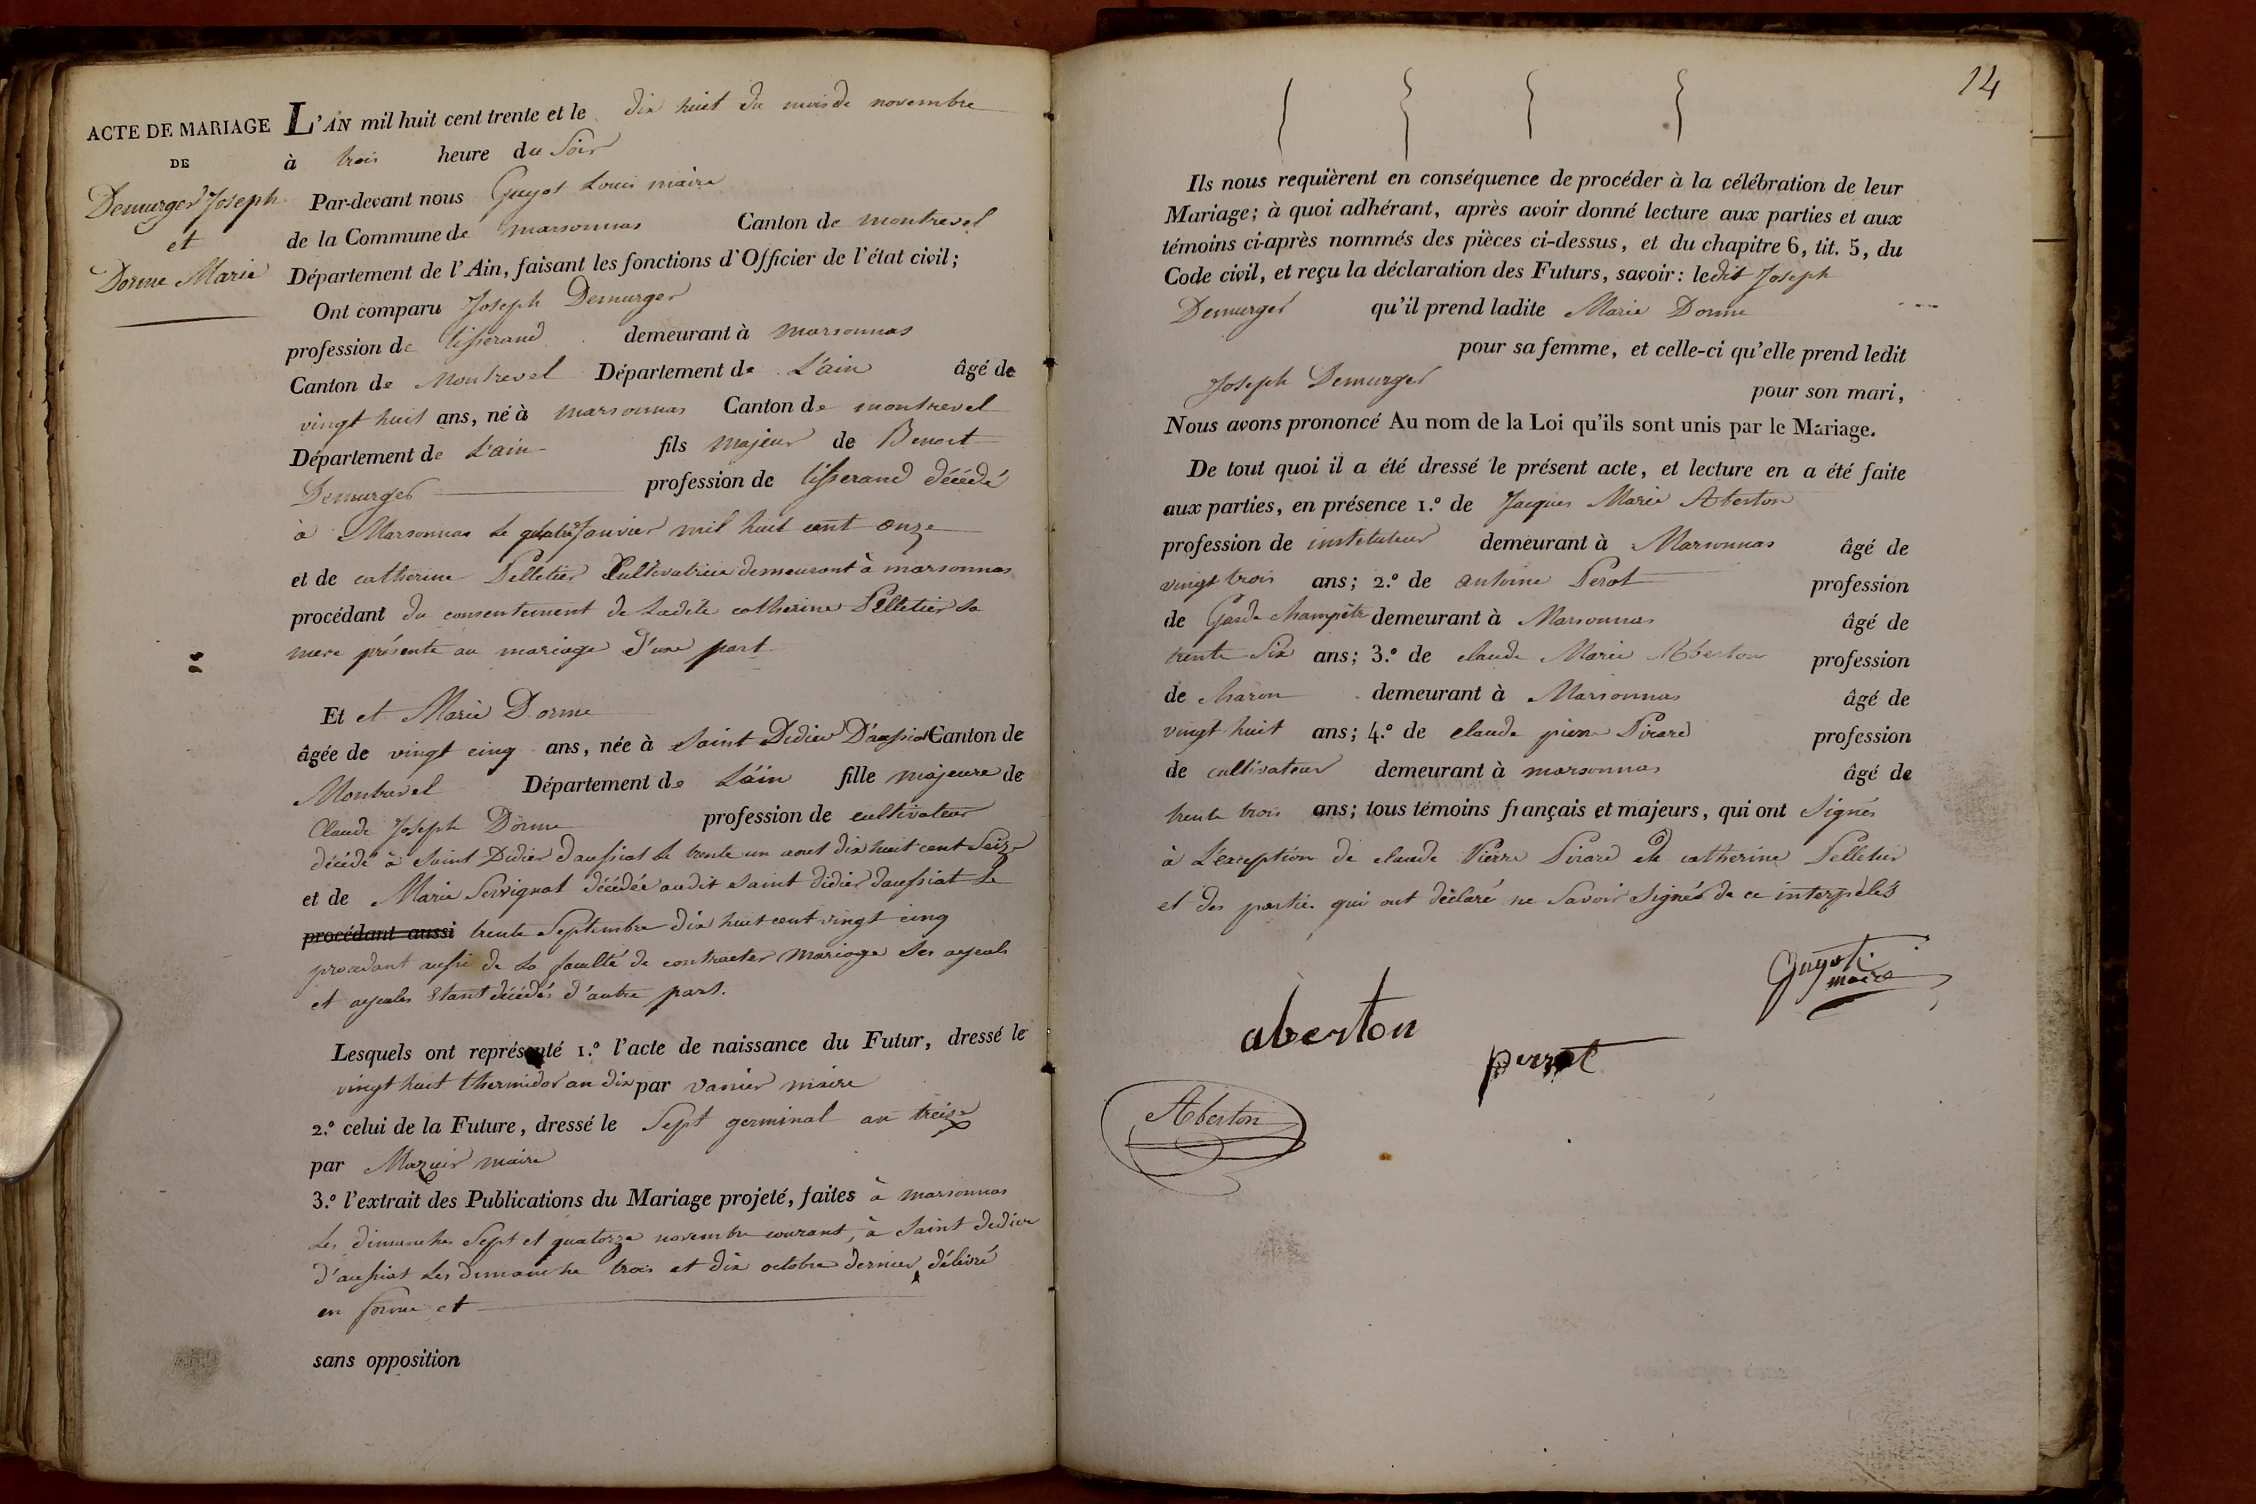 ACTE DE MARIAGE
DE
Demurger Joseph
et
Dorme Marie
L'AN mil huit cent trente et le dix huit du mois de novembre
à trois heure du Soir
Par-devant nous Guyot Louis maire
de la Commune de marsonnas Canton de montrevel
Département de l'Ain, faisant les fonctions d'Officier de l'état civil;
Ont comparu Joseph Demurger
profession de tisserand demeurant à marsonnas
Canton de Montrevel Département de L'ain âgé de
vingt huit ans, né à marsonnas Canton de montrevel
Département de L'ain fils majeur de Benoit
Demurger profession de tisserand décédé
à Marsonnas le quatre Janvier mil huit cent onze
et de catherine Pelletier Cultivatrice demeurant à marsonnas
procédant du consentement de Ladite catherine Pelletier sa
mere présente au mariage d'une part
Et et Marie Dorme
âgée de vingt cinq ans, née à Saint Didier D'aussiat Canton de
Montrevel Département de L'ain fille majeure de
Claude Joseph Dorme profession de cultivateur
décédé à Saint Didier daussiat le trente un aout dix huit cent Seize
et de Marie Servignat décédée audit Saint didier daussiat le
procédant aussi trente Septembre dix huit cent vingt cinq
procedant aussi de la faculté de contracter mariage Ses ayeuls
et ayeules étant décédés d'autre part.
Lesquels ont représenté 1.º l'acte de naissance du Futur, dressé le
vingt huit thermidor an dix par vanier maire
2.º celui de la Future, dressé le Sept germinal an treize
par Mazuir maire
3.º l'extrait des Publications du Mariage projeté, faites à marsonnas
Les dimanches Sept et quatorze novembre courant, à Saint Didier
d'aussiat Les dimanche trois et dix octobre dernier, délivré
en forme et
sans opposition
14
Ils nous requièrent en conséquence de procéder à la célébration de leur
Mariage; à quoi adhérant, après avoir donné lecture aux parties et aux
témoins ci-après nommés des pièces ci-dessus, et du chapitre 6, tit. 5, du
Code civil, et reçu la déclaration des Futurs, savoir: ledit Joseph
Demurger qu'il prend ladite Marie Dorme
pour sa femme, et celle-ci qu'elle prend ledit
Joseph Demurger pour son mari,
Nous avons prononcé Au nom de la Loi qu'ils sont unis par le Mariage.
De tout quoi il a été dressé le présent acte, et lecture en a été faite
aux parties, en présence 1.º de Jacques Marie Aberton
profession de instituteur demeurant à Marsonnas âgé de
vingt trois ans; 2.º de antoine Perot profession
de Garde champêtre demeurant à Marsonnas âgé de
trente Six ans; 3.º de claude Marie Aberton profession
de charon demeurant à Marsonnas âgé de
vingt huit ans; 4.º de claude pierre Pirard profession
de cultivateur demeurant à marsonnas âgé de
trente trois ans; tous témoins français et majeurs, qui ont Signés
à L'exception de claude Pierre Pirard et catherine Pelletier
et des partie qui ont déclaré ne Savoir Signer de ce interpelés
Guyot
maire
aberton
perrot
Aberton